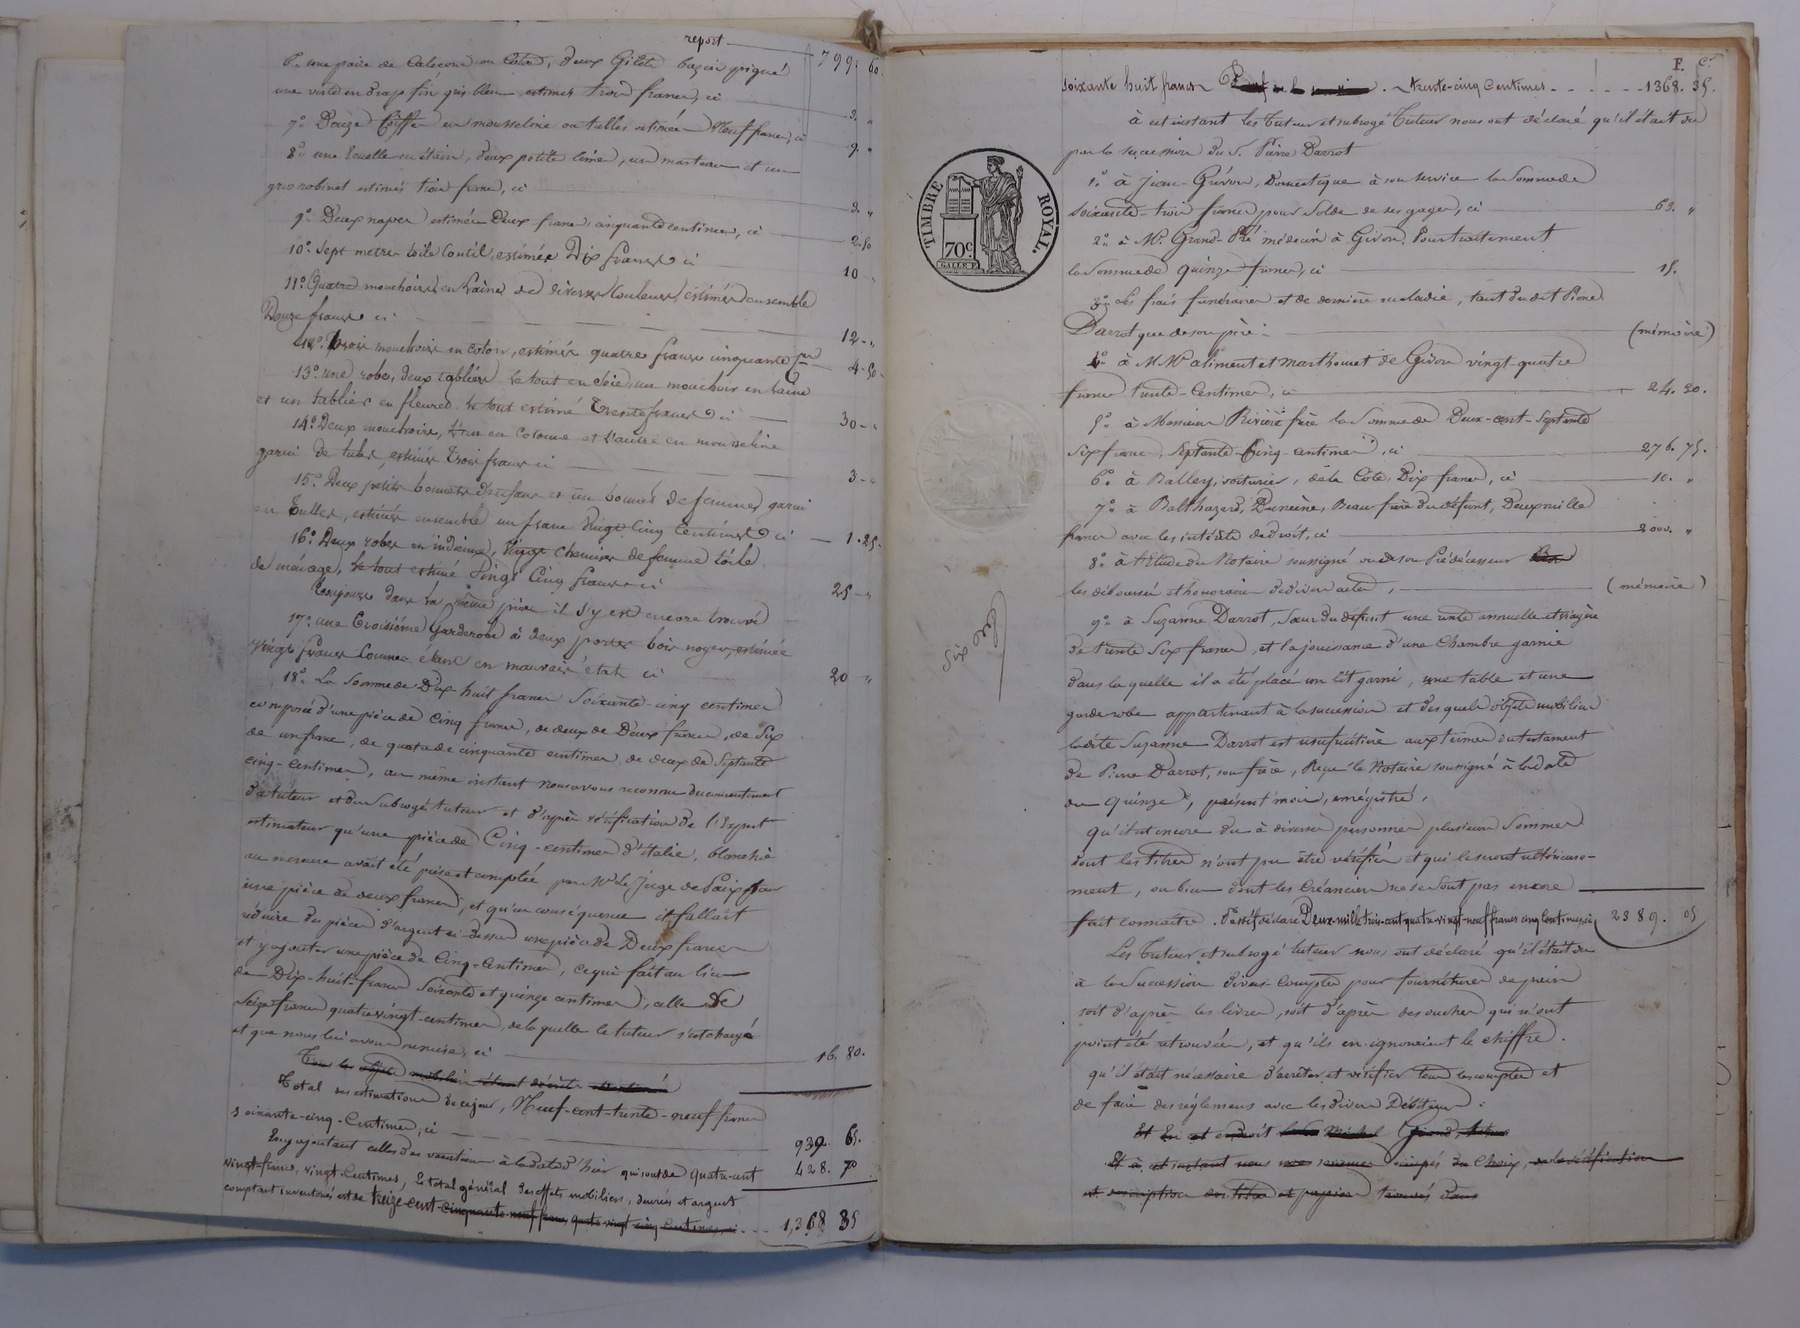 report 799. 60.
6.° une paire de Caleçons en Coton, deux Gilets bazin piqué
une veste en drap fin gris bleu, estimés trois francs, ci 3. "
7.° Douze Coiffes en mousseline ou tulles estimées Neuf francs, ci 9. "
8.° une Ecuelle en étain, deux petites limes, un marteau et un
gros robinet estimés trois francs, ci 3. "
9.° Deux napes estimées Deux francs cinquante centimes, ci 2.50
10.° Sept metres toile Coutil, estimés Dix francs ci 10 "
11.° Quatre mouchoirs en Laine de diverses Couleurs, estimés ensemble
Douze francs ci 12 - "
12.° Trois mouchoirs en coton, estimés quatre francs cinquante Cmes 4-50-
13.° une robe, deux tabliers le tout en Soie, un mouchoir en Laine
et un tablier en fleuret le tout estimé Trente francs ci 30 - "
14.° Deux mouchoirs, l'un en Cotonne et l'autre en mousseline
garni de tulle, estimés Trois francs ci 3 - "
15.° Deux petits bonnets d'enfans et un bonnet de femmes garni
en Tulles, estimés ensemble un franc Vingt Cinq Centimes ci 1.25.
16.° Deux robes en indienne, Vingt chemises de femme toile
de ménage, le tout estimé Vingt Cinq francs ci 25 - "
Toujours dans la même pièce il s'y est encore trouvé
17.° une Troisième Garderobe à deux portes bois noyer, estimée
Vingt francs comme étant en mauvais état ci 20 - "
18.° La Somme de Dix-huit francs Soixante-cinq centimes
composée d'une pièce de Cinq francs, de deux de Deux francs, de Six
de un franc, de quatre de cinquante centimes, de deux de Septante
cinq-Centimes, au même instant nous avons reconnu du consentement
du tuteur et du Subrogé tuteur et d'après vérification de l'Expert
estimateur qu'une pièce de Cinq-centimes d'Italie, blanchie
au mercure avait été prise et comptée par Mr le Juge de Paix pour
une pièce de deux francs, et qu'en conséquence il fallait
réduire des pièces d'argent ci-dessus une pièce de Deux francs
et y ajouter une pièce de Cinq-Centimes, ce qui fait au lieu
de Dix-huit-francs Soixante et quinze centimes, celle de
Seize francs quatre vingt-centimes, de laquelle le tuteur s'est chargé
et que nous lui avons remise, ci 16. 80.
Tous les objets mobiliers étant décrits
Total des estimations de ce jour, Neuf-cent-trente-neuf francs
soixante-cinq-Centimes, ci 939. 65.
En y ajoutant celles des vacations à la date d'hier qui sont de Quatre-cent 428. 70
vingt-francs, vingt-Centimes, le total général des effets mobiliers, denrées et argent
comptant inventoriés est de treize-cent-cinquante-neuf francs, quatre-vingt cinq centimes, ci 1,368 35
F. C.
Soixante huit francs trente-cinq Centimes 1368. 35.
à cet instant les Tuteur et subrogé Tuteur nous ont déclaré qu'il était du
par la succession du S. Pierre Darrot
1.° à Jean-Grévon, Domestique à son service la Somme de
soixante-trois francs pour Solde de ses gages, ci 63. "
2.° à Mr. Grand-Pré médecin à Givors, Pour traitement
la Somme de quinze francs, ci 15.
3.° Les frais funéraires et de dernière maladie, tant du dit Pierre
Darrot que de son père (mémoire)
4.° à MMrs aliment et Marthouret de Givors vingt-quatre
francs trente-Centimes, ci 24. 30.
5.° à Monsieur Rivière frère la Somme de Deux-cent-Septante
Six francs, Septante-Cinq-centimes, ci 276. 75.
6.° à Balley, voiturier, de la Cote, Dix francs, ci 10. "
7.° à Balthazard, Dunéine, Beau-frère du défunt, Deux mille
francs avec les intérêts de droit, ci 2000. "
8.° à l'Etude du Notaire soussigné ou de son Prédécesseur
les déboursés et honoraires de divers actes, (mémoire)
9.° à Suzanne Darrot, Sœur du défunt une rente annuelle et viagère
de trente Six francs, et la jouissance d'une Chambre garnie
dans laquelle il a été placé un lit garni, une table et une
garderobe appartenant à la succession et desquels objets mobiliers
ladite Suzanne Darrot est usufruitière aux termes du testament
de Pierre Darrot, son frère, Reçu le Notaire soussigné à la date
du quinze, présent mois, enregistré.
qu'il est encore du à diverses personnes plusieurs Sommes
dont les titres n'ont pu être vérifiés et qui le seront ultérieure-
ment, ou bien dont les Créanciers ne se Sont pas encore
fait connaître. Passif déclaré Deux-mille trois-cent quatre-vingt-neuf francs cinq Centimes, ci 2389. 05
Les Tuteur et subrogé tuteur nous ont déclaré qu'il était du
à la Succession divers Comptes pour fournitures de pain
soit d'après les livres, soit d'après des ouches qui n'ont
point été retrouvées, et qu'ils en ignoraient le chiffre.
qu'il était nécessaire d'arrêter et vérifier tous les comptes et
de faire des réglemens avec les divers Débiteurs :
Et En cet endroit
Et à cet instant nous nous sommes occupés du Choix, de la vérification
et description des titres et papiers trouvés dans
TIMBRE ROYAL.
70c.